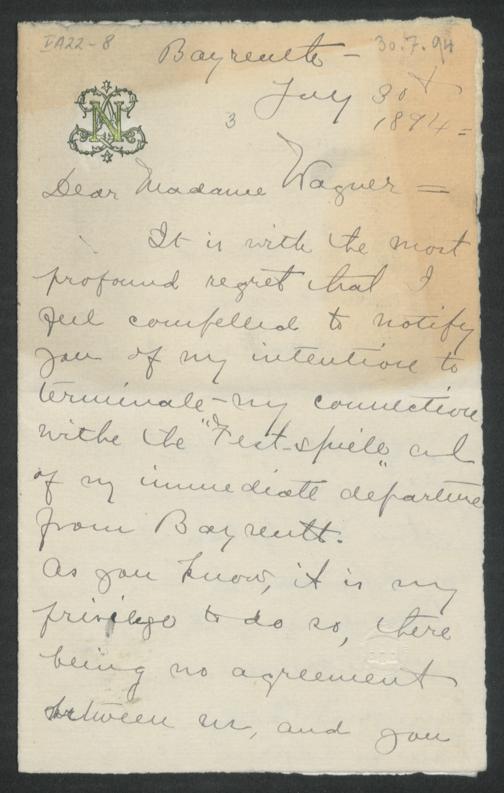 IA22-8
30.7.94
Bayreuth -
July 30
3
1894 =
N
Dear Madame Wagner =
It is with the most
profound regret that I
feel compelled to notify
you of my intention to
terminate my connection
withe the "Fest-spiele" and
of my immediate departure
from Bayreuth.
As you know, it is my
privilege to do so, there
being no agreement
between us, and you